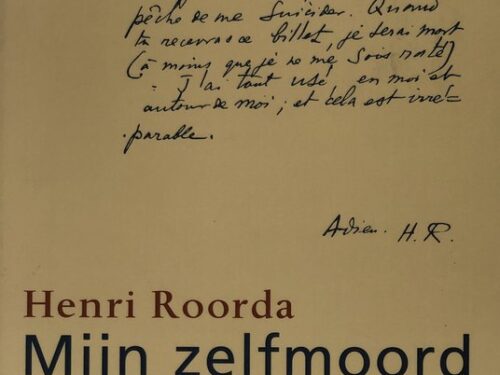 pêche de me suicider. Quand
tu recevras ce billet, je serai mort
(à moins que je ne me sois raté)
J'ai tout usé, en moi et
autour de moi; et cela est irré=
parable.
Adieu. H.R.
Henri Roorda
Mijn zelfmoord